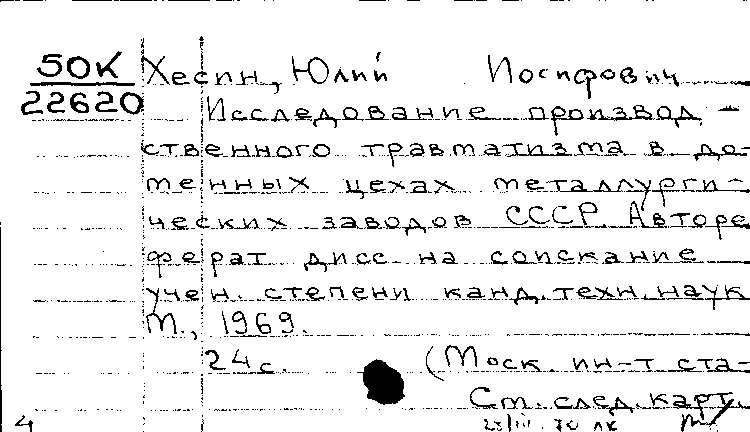 50К Хесин, Юлий Иосифович
22620 Исследование производ-
ственного травматизма в до-
менных цехах металлурги-
ческих заводов СССР. Авторе
ферат дисс. на соискание
учен. степени канд. техн. наук
М., 1969.
24 с. (Моск. ин-т ста-
См. след. карт.
4